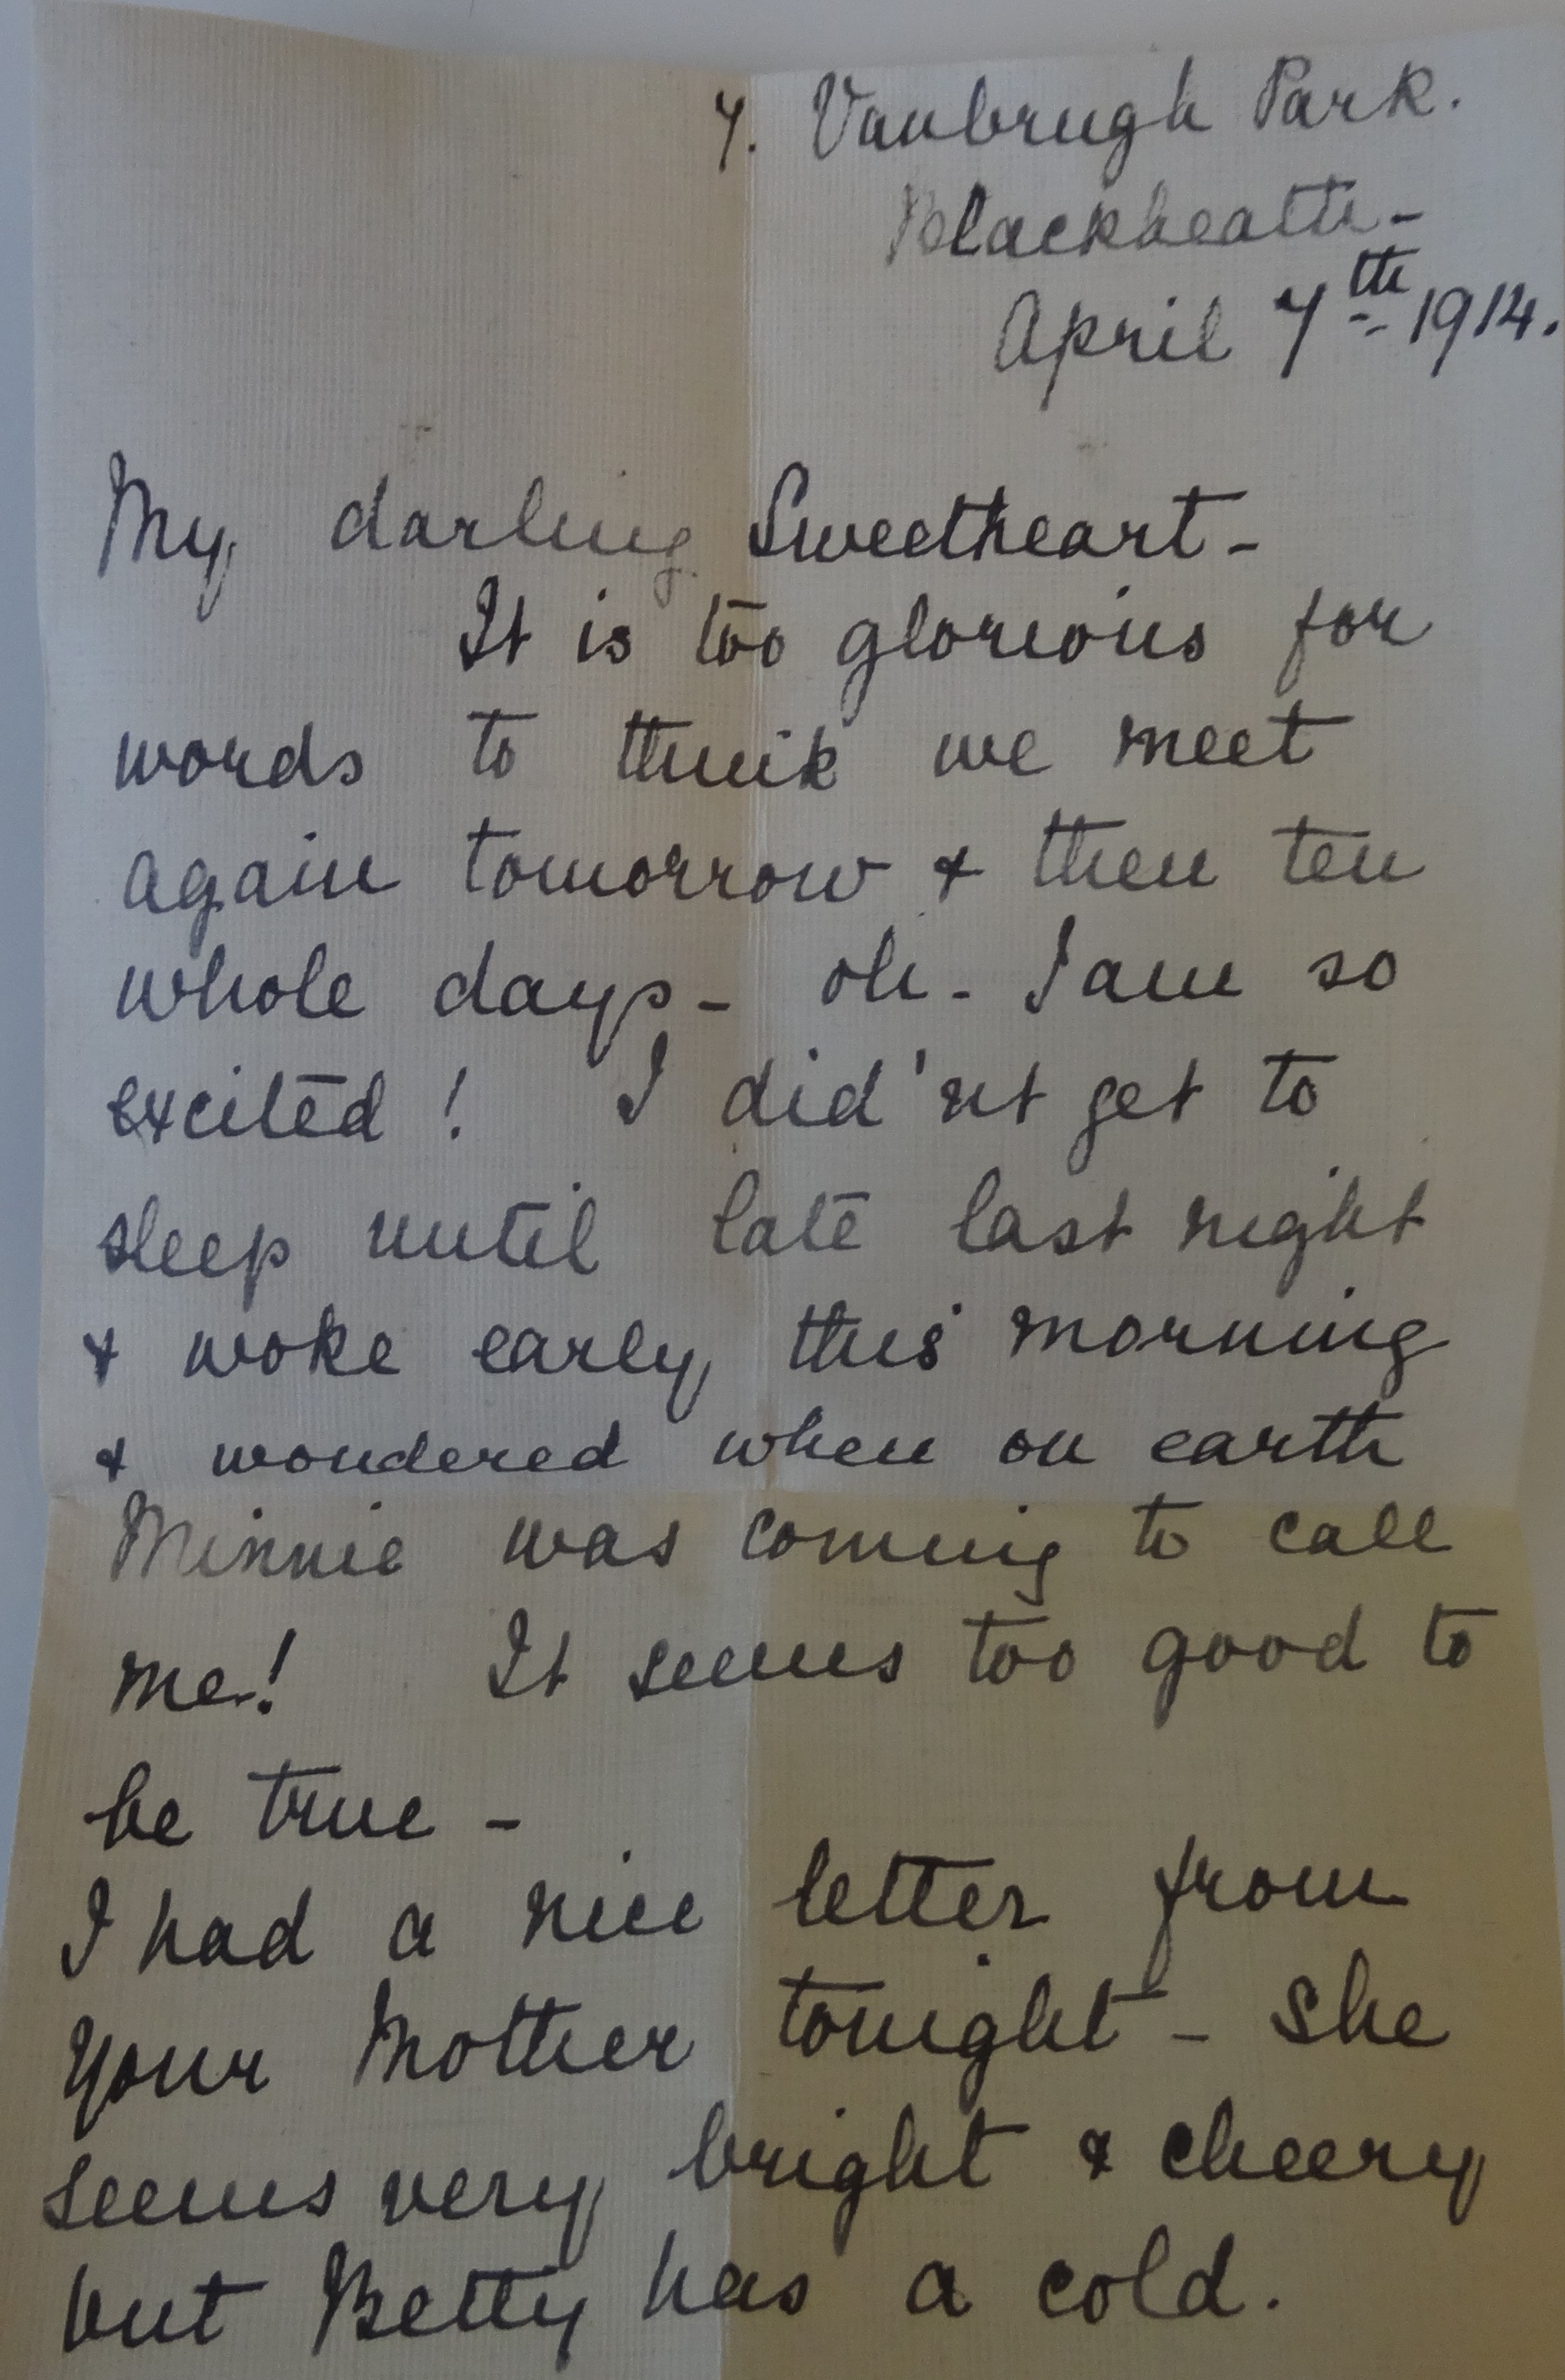 7. Vanbrugh Park.
Blackheath -
April 7th 1914.
My darling Sweetheart -
It is too glorious for
words to think we meet
again tomorrow & then ten
whole days - oh - I am so
excited! I did'nt get to
sleep until late last night
& woke early this morning
& wondered when on earth
Minnie was coming to call
me! It seems too good to
be true -
I had a nice letter from
your Mother tonight - She
seems very bright & cheery
but Betty has a cold.